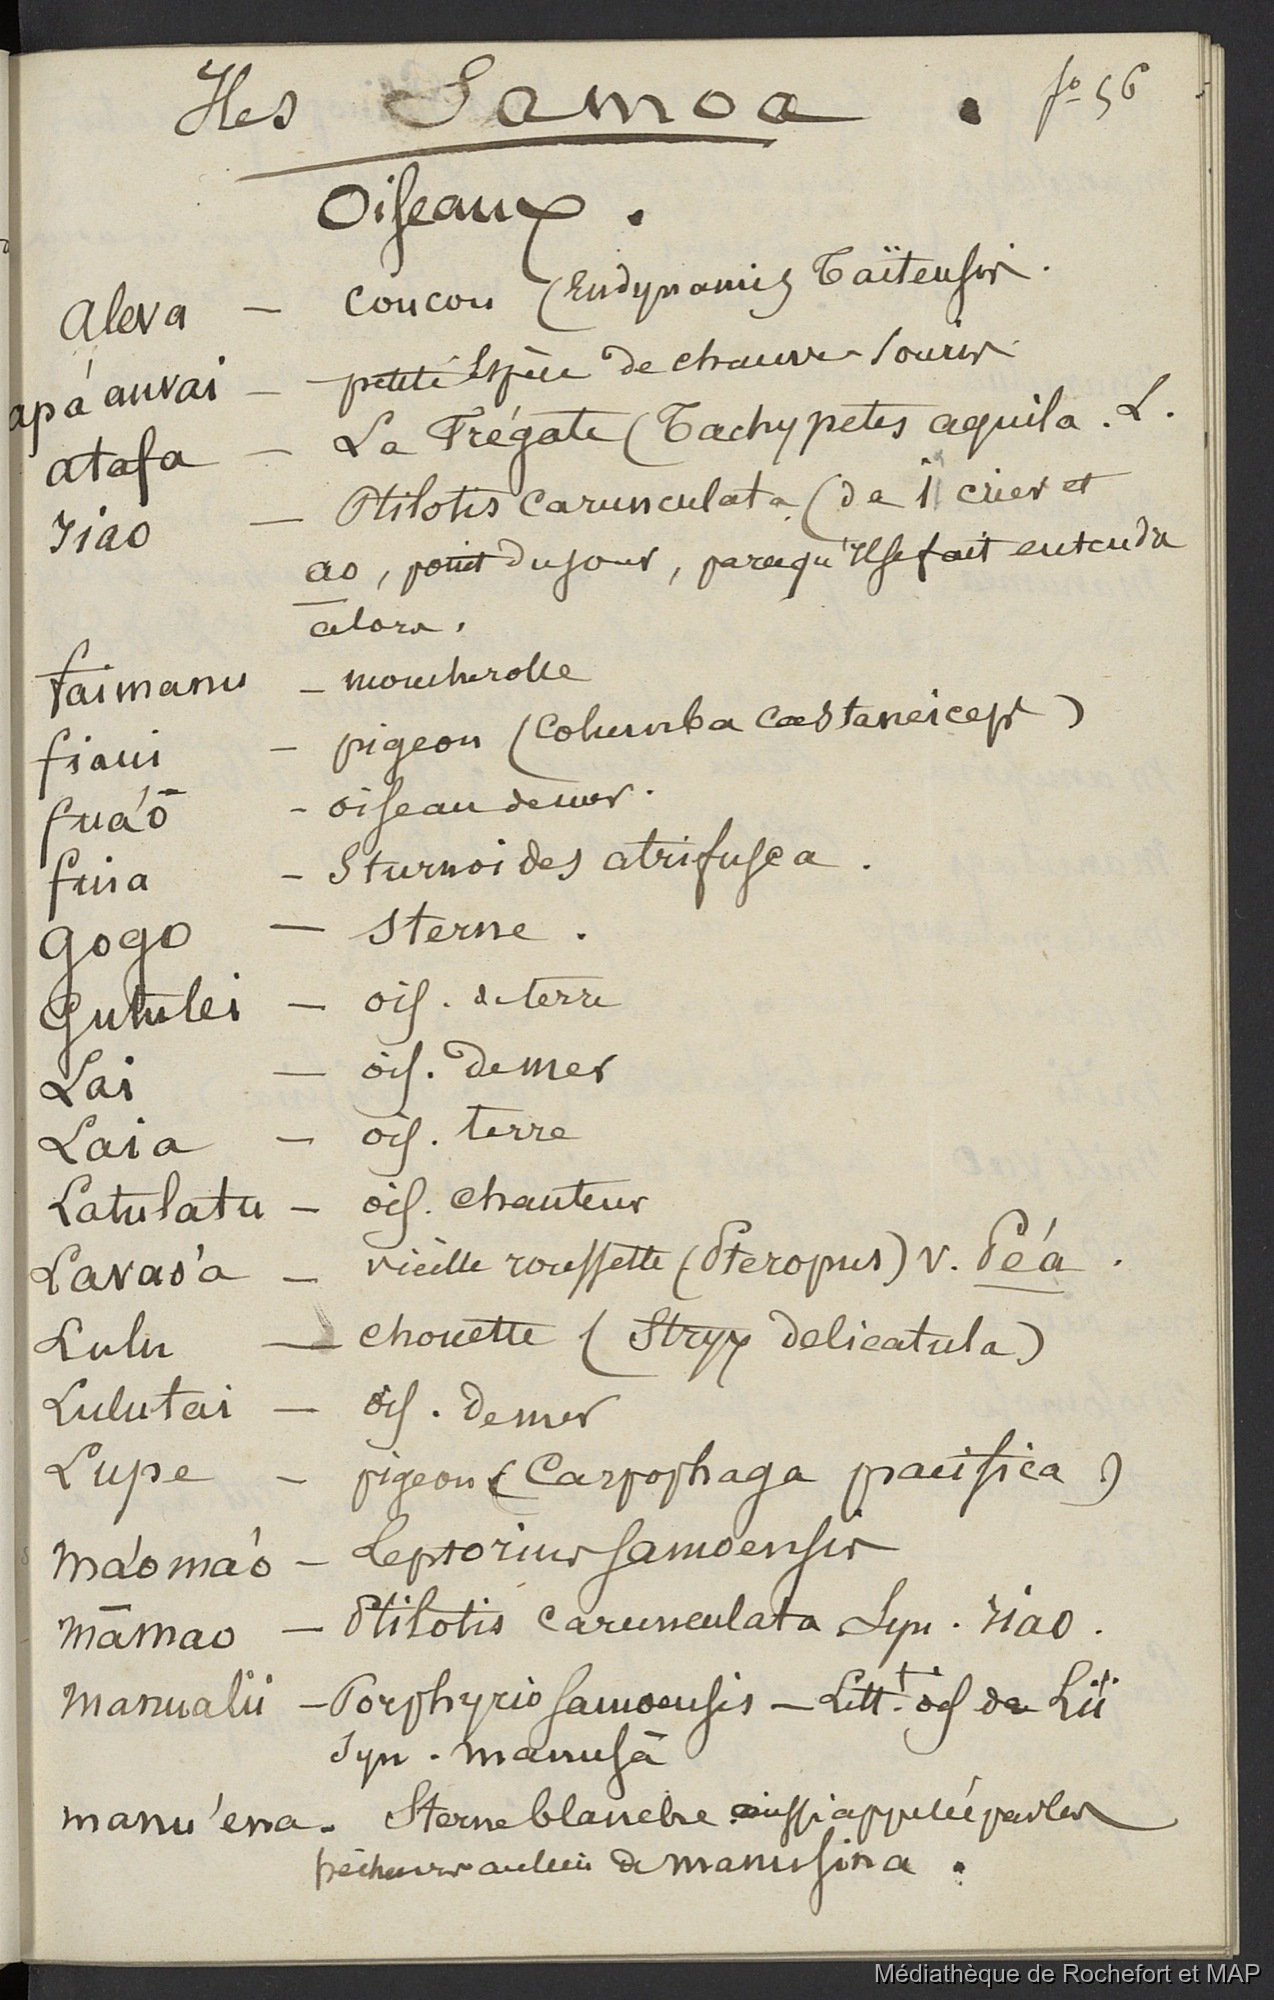 Iles Samoa . fo 56
Oiseaux .
Aleva — Coucou (Eudynamis Taïtensis .
apá auvai — petite Espèce de chauve-souris
atafa — La Frégate (Tachypetes aquila . L .
Iiao — Ptilotis carunculata (de i crier et
ao, point du jour, parcequ'il se fait entendre
alors .
faimanu — moucherolle
fiaui — pigeon (Columba castaneiceps)
fuá'ō — oiseau de mer .
fuia — Sturnoides atrifusca .
Gogo — Sterne .
Gutulei — ois . de terre
Lai — ois . de mer
Laia — ois . terre
Latulatu — ois . chanteur
Lavaó'a — vieille roussette (Pteropus) v. Pe'á .
Lulu — chouette (Stryx delicatula)
Lulutai — ois . de mer
Lupe — pigeon (Carpophaga pacifica)
Má'omá'o — Leptorius samoensis
māmao — Ptilotis carunculata Syn . Iiao .
Manualii — Porphyrio samoensis — Littt. ois de Lii
Syn . manusā
manu'ena . Sterne blanche aussi appelée par les
pêcheurs au lieu de manusina .
Médiathèque de Rochefort et MAP